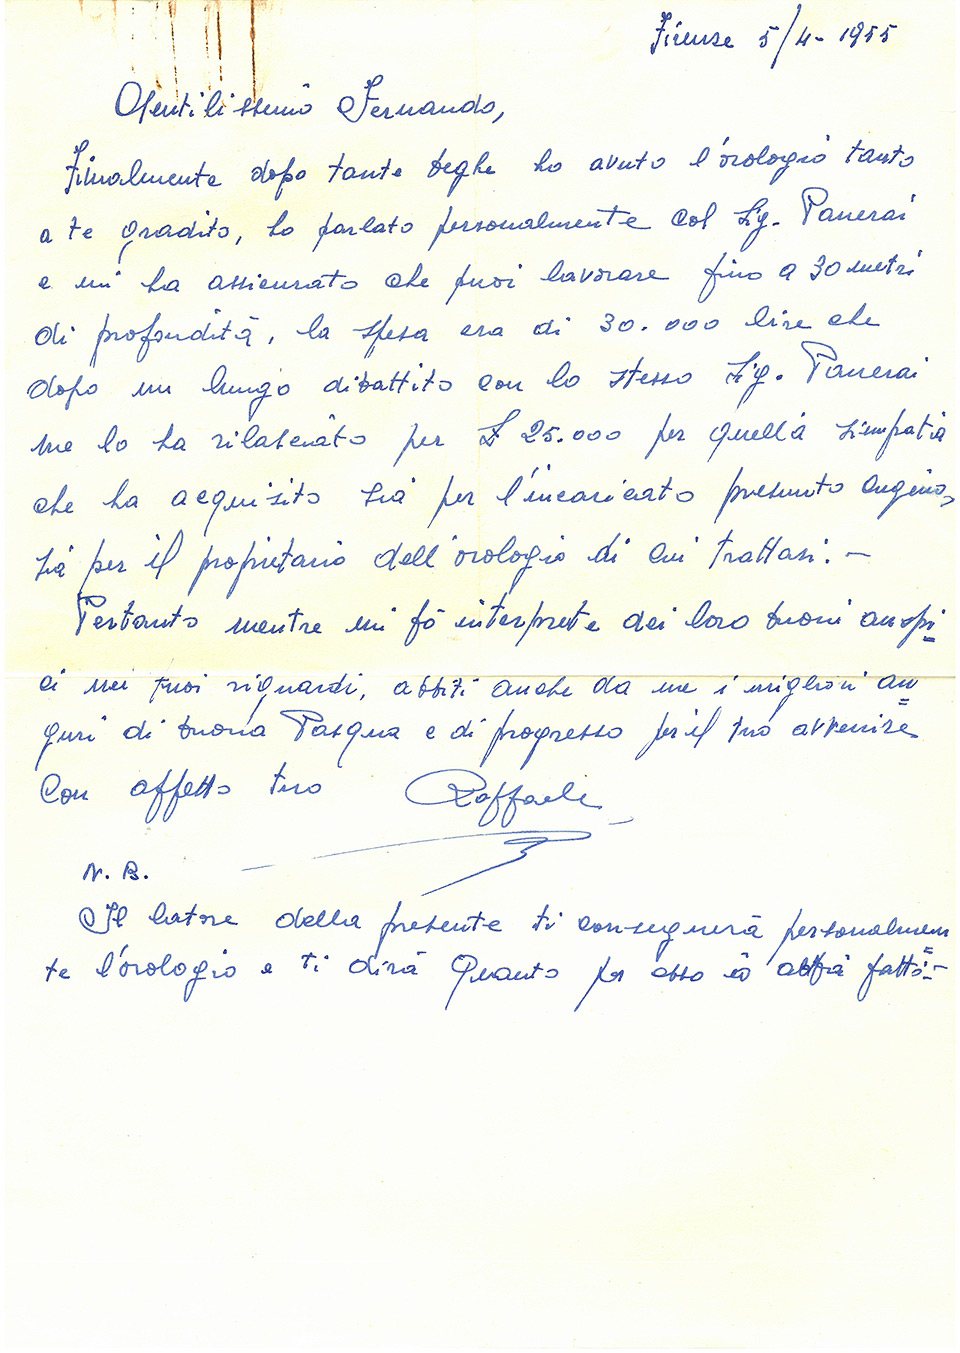 Firenze 5/4-1955
Gentilissimo Fernando,
Finalmente dopo tante beghe ho avuto l'orologio tanto
a te gradito, ho parlato personalmente col Sig. Panerai
e mi ha assicurato che puoi lavorare fino a 30 metri
di profondità, la spesa era di 30.000 lire che
dopo un lungo dibattito con lo stesso Sig. Panerai
me lo ha rilasciato per £ 25.000 per quella simpatia
che ha acquisito sia per l'incaricato presunto cugino,
sia per il proprietario dell'orologio di cui trattasi.-
Pertanto mentre mi fò interprete dei loro buoni auspi=
ci nei tuoi riguardi, abbiti anche da me i migliori au=
guri di buona Pasqua e di progresso per il tuo avvenire
Con affetto tuo Raffaele
N.B.
Il latore della presente ti consegnerà personalmen=
te l'orologio e ti dirà quanto per esso io abbia fatto.-